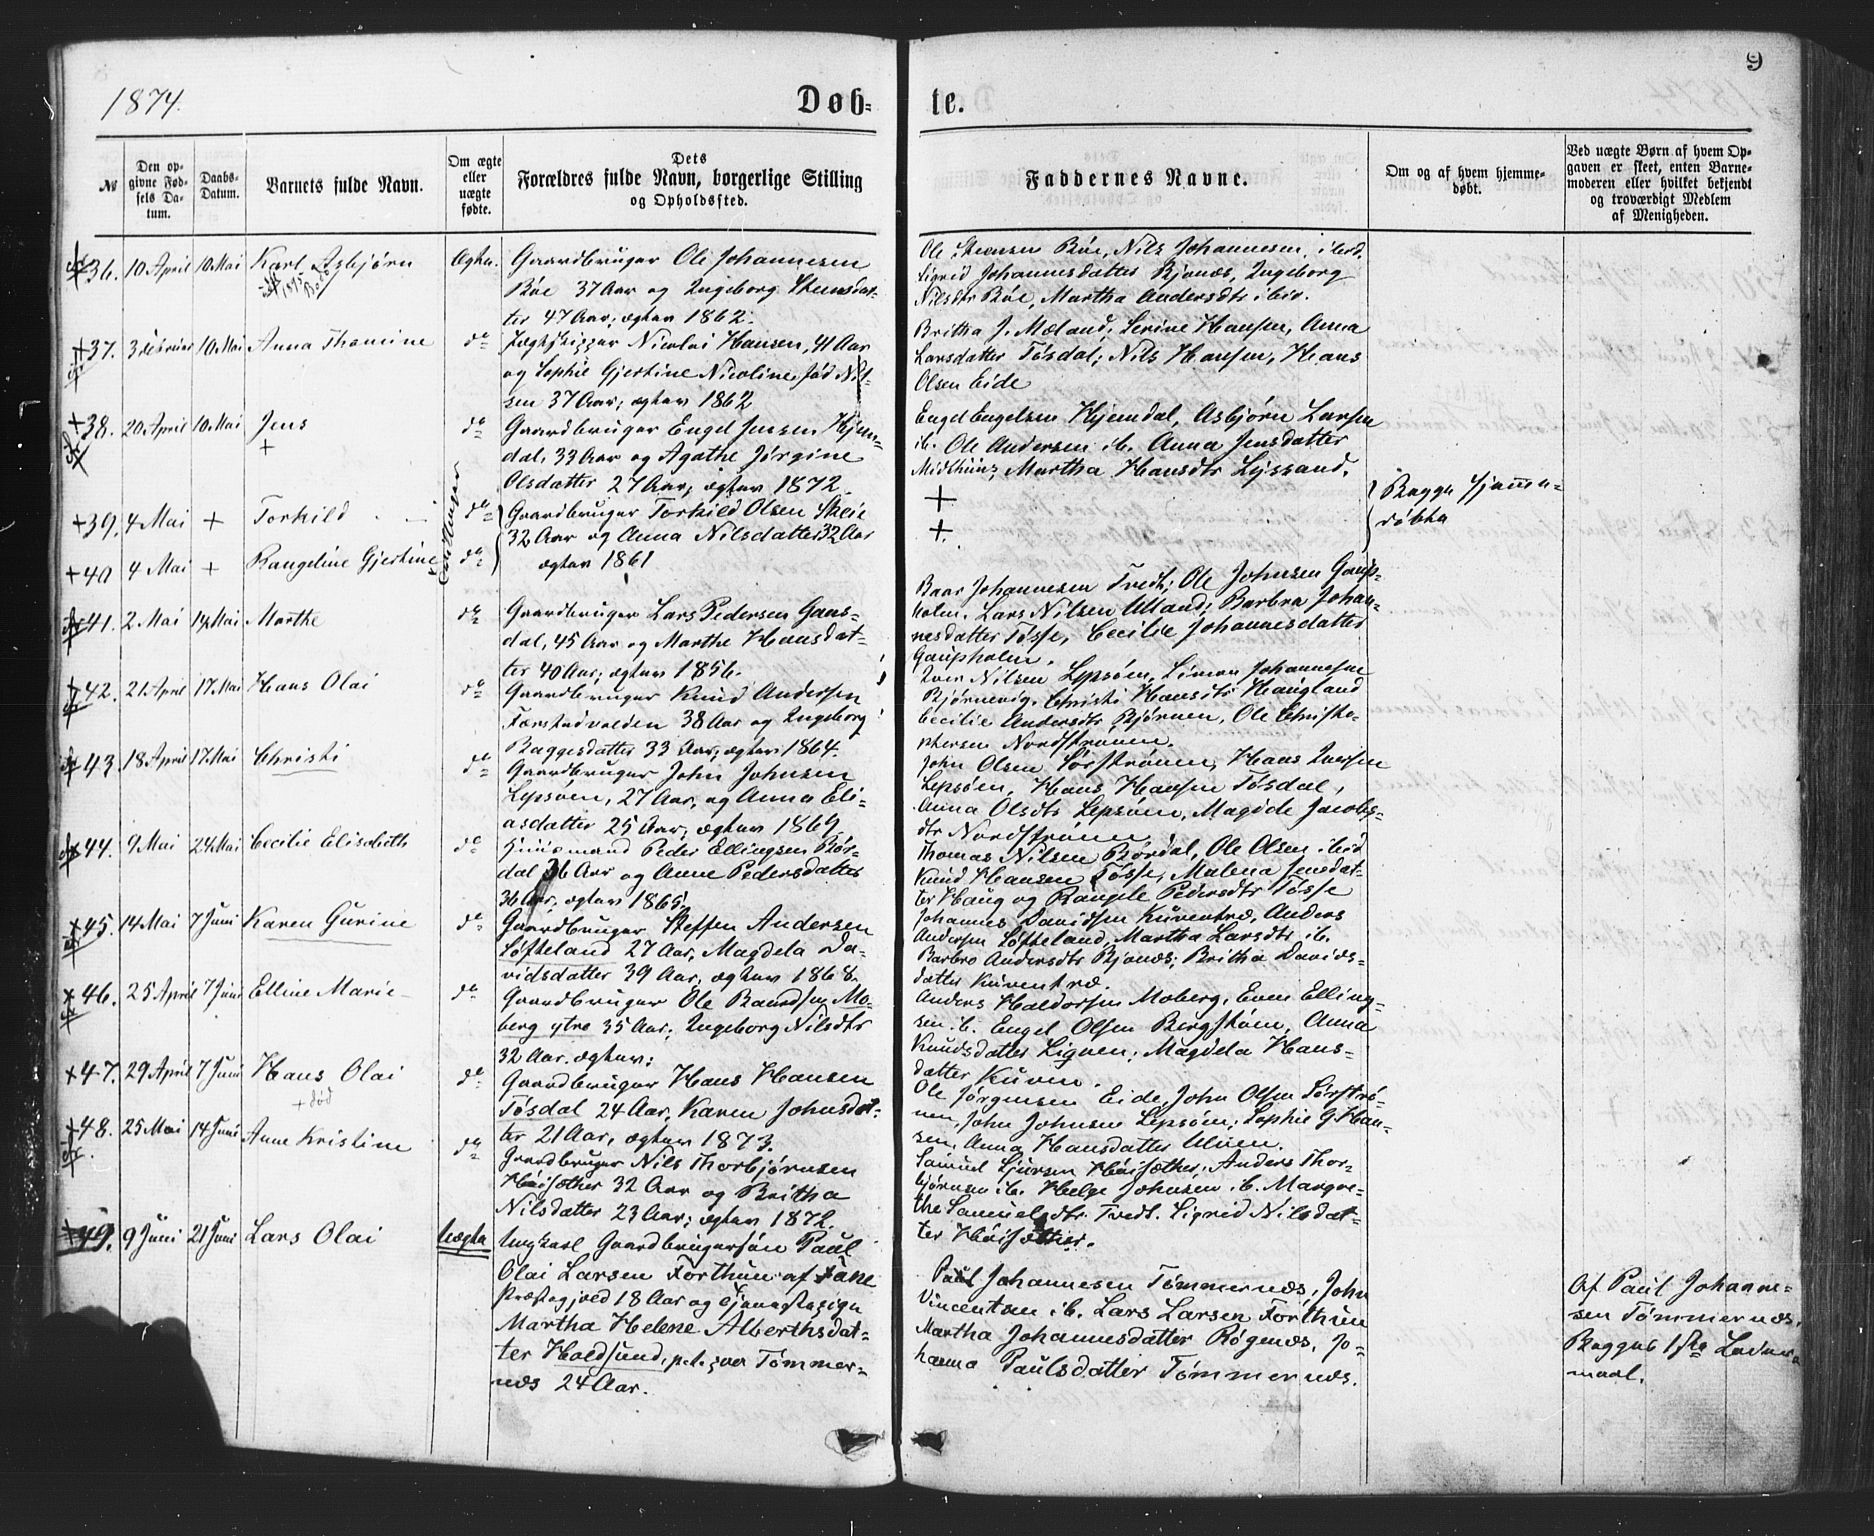 1874.
Døb-
te.
9
№
Den op-
givne Fød-
sels Da-
tum.
Daabs-
Datum.
Barnets fulde Navn.
Om ægte
eller
uægte
fødte.
Dets
Forældres fulde Navn, borgerlige Stilling
og Opholdssted.
Faddernes Navne.
Om og af hvem hjemme-
døbt.
Ved uægte Børn af hvem Op-
gaven er skeet, enten Barne-
moderen eller hvilket bekjendt
og troværdigt Medlem
af Menigheden.
36. 10 April 10 Mai Karl Asbjørn
Ægte. Gaardbruger Ole Johannesen
Bøe 37 Aar og Ingeborg Steensdat-
ter 47 Aar; ægtev 1862.
Ole Steensen Bøe, Nils Johannesen, ibid.
Sigrid Johannesdatter Bjånæs, Ingeborg
Nilsdtr Bøe, Martha Andersdtr ibid.
37. 3 Februar 10 Mai Anna Thomine
do Jægtskipper Nicolai Hansen, 41 Aar
og Sophie Gjertine Nicoline, fød Nil-
sen 37 Aar; ægtev 1862
Britha J. Mæland, Serine Hansen, Anna
Larsdatter Tøsdal; Nils Hansen, Hans
Olsen Eide
38. 20 April 10 Mai Jens
+
do Gaardbruger Engel Jensen Hjem-
dal, 33 Aar og Agathe Jørgine
Olsdatter 27 Aar; ægtev 1872.
Engel Engelsen Hjemdal, Asbjørn Larsen
ib. Ole Andersen ib. Anna Jensdatter
Midthun; Martha Hansdtr Lyssand.
39. 4 Mai + Torkild
Tvillinger
do Gaardbruger Torkild Olsen Skeie
32 Aar og Anna Nilsdatter 32 Aar
ægtev 1861
+
+
Begge hjemme-
døbte
40 4 Mai + Rangeline Gjertine
do
41. 2 Mai 14 Mai Marthe
do Gaardbruger Lars Pedersen Gaas-
dal, 45 Aar og Marthe Hansdat-
ter 40 Aar; ægtev 1856.
Baar Johannesen Tvedt; Ole Johnsen Gaup-
holm. Lars Nilsen Ulland; Barbra Johan-
nesdatter Tøsse, Cecilie Johannesdatter
Gaupholm.
42. 21 April 17 Mai Hans Olai
do Gaardbruger Knud Andersen
Færstadvolden 38 Aar og Ingeborg
Baggesdatter 33 Aar; ægtev 1864.
Iver Nilsen Lepsøen, Simon Johannesen
Bjørnevig, Christi Hansdtr Haugland
Cecilie Andersdtr Bjørnen, Ole Christo-
phersen Nordstrønen.
43. 18 April 17 Mai Christi
do Gaardbruger John Johnsen
Lepsøen, 27 Aar, og Anna Eli-
asdatter 25 Aar; ægtev 1869
John Olsen Sørstrønen, Hans Iversen
Lepsøen, Hans Hansen Tøsdal,
Anna Olsdtr Lepsøen, Magdele Jacobs-
dtr Nordstrønen
44. 9 Mai 24 Mai Cecilie Elisabeth
do Huusmand Peder Ellingsen Bør-
dal 36 Aar og Anne Pedersdatter
36 Aar, ægtev 1865.
Thomas Nilsen Børdal, Ole Olsen ibid
Knud Hansen Tøsse, Malena Jensdat-
ter Haug og Rangele Pedersdtr Tøsse
45. 14 Mai 7 Juni Karen Gurine
do Gaardbruger Steffen Andersen
Søfteland 27 Aar, Magdela Da-
vidsdatter 39 Aar, ægtev 1868.
Johannes Davidsen Kuventræ, Anders
Andersen Søfteland, Martha Larsdtr ib.
Barbro Andersdtr Bjånæs; Britha Davids-
datter Kuventræ.
46. 25 April 7 Juni Elline Marie
do Gaardbruger Ole Baardsen Mo-
berg ytre 35 Aar; Ingeborg Nilsdtr
32 Aar. ægtev:
Anders Haldorsen Moberg, Even Elling-
sen ib. Engel Olsen Bergstøen, Anna
Knudsdatter Ligven; Magdela Hans-
datter Kuven.
47. 29 April 7 Juni Hans Olai
+ død
do Gaardbruger Hans Hansen
Tøsdal 24 Aar, Karen Johnsdat-
ter 21 Aar, ægtev 1873.
Ole Jørgensen Eide, John Olsen Sørstrø-
nen, John Johnsen Lepsøen; Sophie G. Han-
sen, Anna Hansdatter Ulven.
48. 25 Mai 14 Juni Anne Kristine
do Gaardbruger Nils Thorbjørnsen
Høisæther 32 Aar og Britha
Nilsdatter 23 Aar; ægtev 1872.
Samuel Sjursen Høisæther, Anders Thor-
bjørnsen ib. Helge Johnsen ib. Margre-
the Samuelsdtr Tvedt. Sigrid Nilsdat-
ter Høisæther.
49. 9 Juni 21 Juni Lars Olai
Uægte Ungkarl Gaardbrugersøn Paul
Olai Larsen Forthun af Fane
Præstegjeld 18 Aar og Tjenestepige
Martha Helene Alberthsdat-
ter Holdsund, p.t. paa Tømmer-
næs 24 Aar.
Paul Johannesen Tømmernæs, John
Vincentsen ib. Lars Larsen Forthun
Martha Johannesdatter Røgenæs, Jo-
hanna Paulsdatter Tømmernæs.
Af Paul Johanne-
sen Tømmernæs.
Begges 1ste Leiers-
maal.